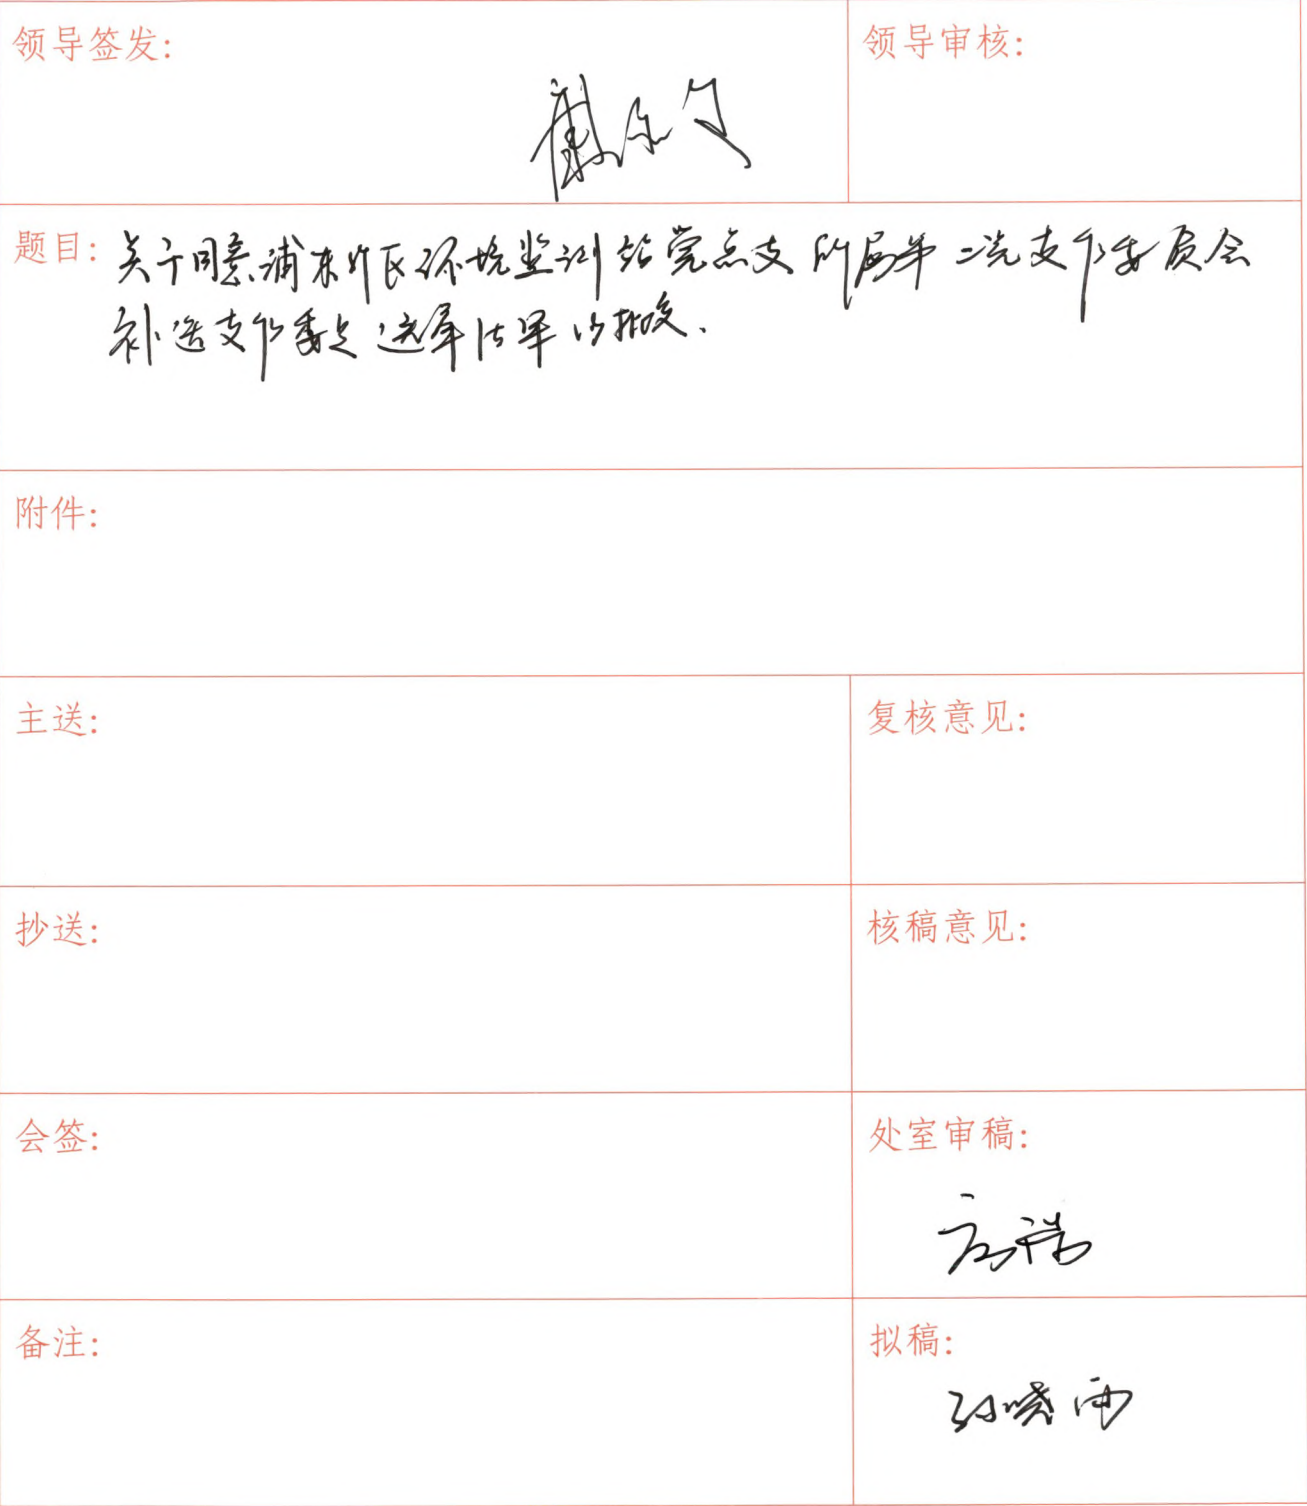 领导签发:
领导审核:
题目: 关于同意浦东新区环境监测站党总支所属第二党支部委员会
补选支部委员选举结果的批复.
附件:
主送:
复核意见:
抄送:
核稿意见:
会签:
处室审稿:
备注:
拟稿:
孙晓雨